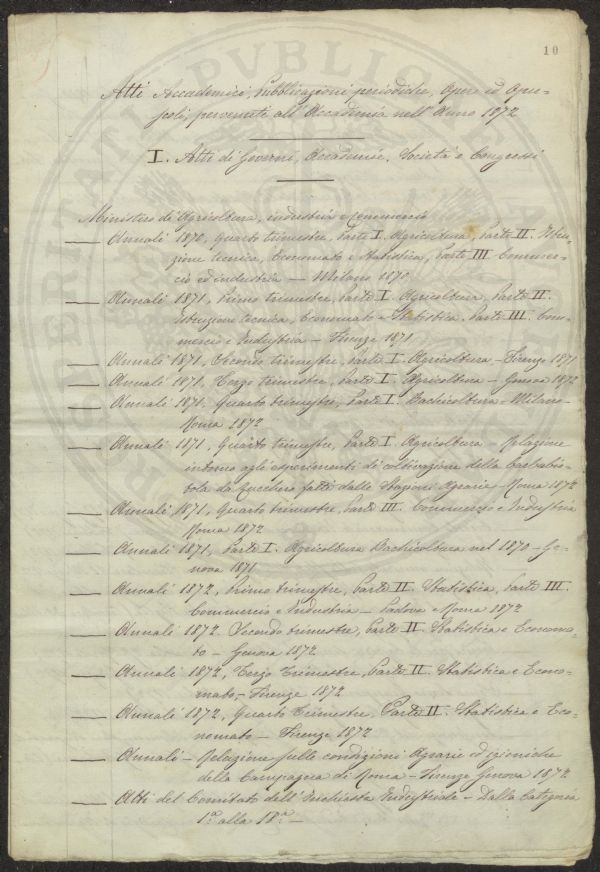 10
Atti Accademici, Pubblicazioni periodiche, Opere ed Opu-
scoli, pervenuti all'Accademia nell'Anno 1872
I. Atti di Governi, Accademie, Società e Congressi
Ministero di Agricoltura, industria e commercio
— Annali 1870, Quarto trimestre, Parte I. Agricoltura, Parte II. Istru-
zione tecnica, Economato e Statistica, Parte III Commer-
cio ed industria — Milano 1870
— Annali 1871, Primo trimestre, Parte I. Agricoltura, Parte II.
Istruzione tecnica, Economato e Statistica, Parte III. Com-
mercio e Industria — Firenze 1871
— Annali 1871, Secondo trimestre, Parte I. Agricoltura — Firenze 1871
— Annali 1871, Terzo trimestre, Parte I. Agricoltura — Genova 1872
— Annali 1871, Quarto trimestre, Parte I. Bachicoltura — Milano —
Roma 1872
— Annali 1871, Quarto trimestre, Parte I. Agricoltura — Relazione
intorno agli esperimenti di coltivazione della Barbabie-
tola da Zucchero fatti dalle Stazioni Agrarie — Roma 1872
— Annali 1871, Quarto trimestre, Parte III. Commercio e Industria
Roma 1872
— Annali 1871, Parte I. Agricoltura Bachicoltura nel 1870 — Ge-
nova 1871
— Annali 1872, Primo trimestre, Parte II. Statistica, Parte III.
Commercio e Industria — Padova e Roma 1872
— Annali 1872. Secondo trimestre, Parte II. Statistica e Economa-
to — Genova 1872
— Annali 1872, Terzo Trimestre, Parte II. Statistica e Econo-
mato, — Firenze 1872
— Annali 1872, Quarto Trimestre, Parte II. Statistica e Eco-
nomato — Firenze 1872
— Annali — Relazione sulle condizioni Agrarie ed igieniche
della Campagna di Roma — Firenze Genova 1872
— Atti del Comitato dell'Inchiesta Industriale — Dalla Categoria
1ª alla 18ª —